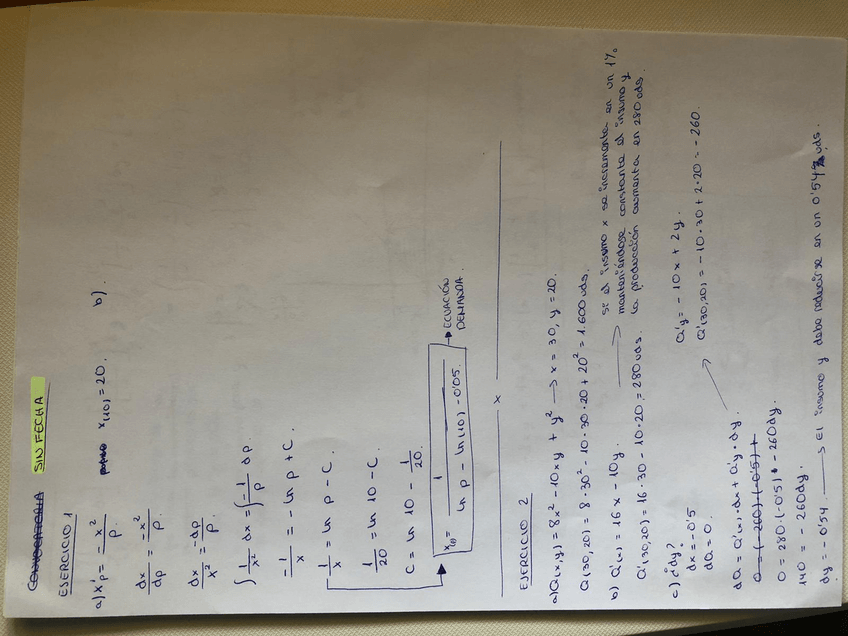 CONVOCATORIA SIN FECHA
EJERCICIO 1
a) x'p = -x²/p. x(10) = 20. b)
dx/dp = -x²/p.
dx/x² = -dp/p.
∫ 1/x² dx = ∫ -1/p dp
-1/x = -ln p + C.
1/x = ln p - C.
1/20 = ln 10 - C.
C = ln 10 - 1/20.
x(p) = 1/(ln p - ln(10) - 0'05). → ECUACIÓN DEMANDA.
x
EJERCICIO 2
a) Q(x,y) = 8x² - 10xy + y² → x = 30, y = 20.
Q(30,20) = 8·30² - 10·30·20 + 20² = 1.600 uds.
b) Q'(x) = 16x - 10y.
Q'(30,20) = 16·30 - 10·20 = 280 uds.
→ Si el insumo x se incrementa en un 1%
manteniéndose constante el insumo y
la producción aumenta en 280 uds.
c) ¿dy?
dx = -0'5
dQ = 0.
Q'y = -10x + 2y.
Q'(30,20) = -10·30 + 2·20 = -260.
dQ = Q'(x)·dx + Q'y·dy.
0 = (-260)(-0'5) +
0 = 280·(-0'5) - 260dy.
140 = -260dy.
dy = -0'54. → El insumo y debe reducirse en un 0'54 uds.